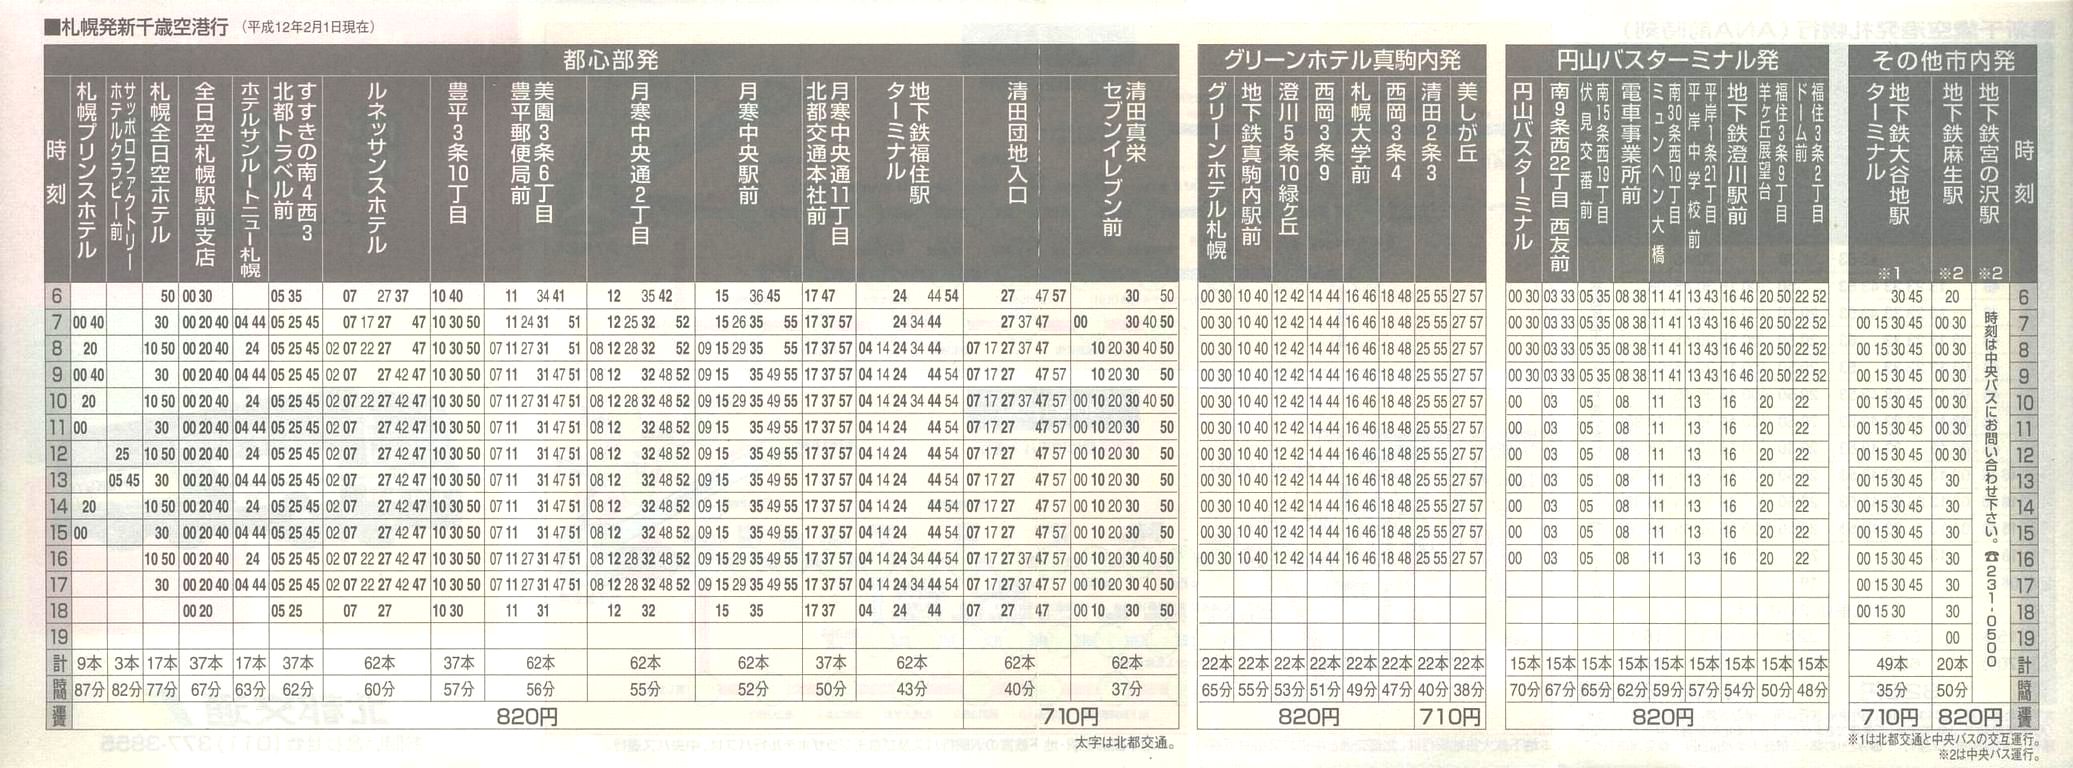 ■札幌発新千歳空港行（平成12年2月1日現在）
都心部発
時刻
札幌プリンスホテル
サッポロファクトリー
ホテルクラビー前
札幌全日空ホテル
全日空札幌駅前支店
ホテルサンルートニュー札幌
すすきの南4西3
北都トラベル前
ルネッサンスホテル
豊平3条10丁目
美園3条6丁目
豊平郵便局前
月寒中央通2丁目
月寒中央駅前
月寒中央通11丁目
北都交通本社前
地下鉄福住駅
ターミナル
清田団地入口
清田真栄
セブンイレブン前
6 50 00 30 05 35 07 27 37 10 40 11 34 41 12 35 42 15 36 45 17 47 24 44 54 27 47 57 30 50
7 00 40 30 00 20 40 04 44 05 25 45 07 17 27 47 10 30 50 11 24 31 51 12 25 32 52 15 26 35 55 17 37 57 24 34 44 27 37 47 00 30 40 50
8 20 10 50 00 20 40 24 05 25 45 02 07 22 27 47 10 30 50 07 11 27 31 51 08 12 28 32 52 09 15 29 35 55 17 37 57 04 14 24 34 44 07 17 27 37 47 10 20 30 40 50
9 00 40 30 00 20 40 04 44 05 25 45 02 07 27 42 47 10 30 50 07 11 31 47 51 08 12 32 48 52 09 15 35 49 55 17 37 57 04 14 24 44 54 07 17 27 47 57 10 20 30 50
10 20 10 50 00 20 40 24 05 25 45 02 07 22 27 42 47 10 30 50 07 11 27 31 47 51 08 12 28 32 48 52 09 15 29 35 49 55 17 37 57 04 14 24 34 44 54 07 17 27 37 47 57 00 10 20 30 40 50
11 00 30 00 20 40 04 44 05 25 45 02 07 27 42 47 10 30 50 07 11 31 47 51 08 12 32 48 52 09 15 35 49 55 17 37 57 04 14 24 44 54 07 17 27 47 57 00 10 20 30 50
12 25 10 50 00 20 40 24 05 25 45 02 07 27 42 47 10 30 50 07 11 31 47 51 08 12 32 48 52 09 15 35 49 55 17 37 57 04 14 24 44 54 07 17 27 47 57 00 10 20 30 50
13 05 45 30 00 20 40 04 44 05 25 45 02 07 27 42 47 10 30 50 07 11 31 47 51 08 12 32 48 52 09 15 35 49 55 17 37 57 04 14 24 44 54 07 17 27 47 57 00 10 20 30 50
14 20 10 50 00 20 40 24 05 25 45 02 07 27 42 47 10 30 50 07 11 31 47 51 08 12 32 48 52 09 15 35 49 55 17 37 57 04 14 24 44 54 07 17 27 47 57 00 10 20 30 50
15 00 30 00 20 40 04 44 05 25 45 02 07 27 42 47 10 30 50 07 11 31 47 51 08 12 32 48 52 09 15 35 49 55 17 37 57 04 14 24 44 54 07 17 27 47 57 00 10 20 30 50
16 10 50 00 20 40 24 05 25 45 02 07 22 27 42 47 10 30 50 07 11 27 31 47 51 08 12 28 32 48 52 09 15 29 35 49 55 17 37 57 04 14 24 34 44 54 07 17 27 37 47 57 00 10 20 30 40 50
17 30 00 20 40 04 44 05 25 45 02 07 22 27 42 47 10 30 50 07 11 27 31 47 51 08 12 28 32 48 52 09 15 29 35 49 55 17 37 57 04 14 24 34 44 54 07 17 27 37 47 57 00 10 20 30 40 50
18 00 20 05 25 07 27 10 30 11 31 12 32 15 35 17 37 04 24 44 07 27 47 00 10 30 50
19
計 9本 3本 17本 37本 17本 37本 62本 37本 62本 62本 62本 37本 62本 62本 62本
時間 87分 82分 77分 67分 63分 62分 60分 57分 56分 55分 52分 50分 43分 40分 37分
運賃 820円 710円
太字は北都交通。
グリーンホテル真駒内発
グリーンホテル札幌
地下鉄真駒内駅前
澄川5条10緑ヶ丘
西岡3条9
札幌大学前
西岡3条4
清田2条3
美しが丘
00 30 10 40 12 42 14 44 16 46 18 48 25 55 27 57
00 30 10 40 12 42 14 44 16 46 18 48 25 55 27 57
00 30 10 40 12 42 14 44 16 46 18 48 25 55 27 57
00 30 10 40 12 42 14 44 16 46 18 48 25 55 27 57
00 30 10 40 12 42 14 44 16 46 18 48 25 55 27 57
00 30 10 40 12 42 14 44 16 46 18 48 25 55 27 57
00 30 10 40 12 42 14 44 16 46 18 48 25 55 27 57
00 30 10 40 12 42 14 44 16 46 18 48 25 55 27 57
00 30 10 40 12 42 14 44 16 46 18 48 25 55 27 57
00 30 10 40 12 42 14 44 16 46 18 48 25 55 27 57
00 30 10 40 12 42 14 44 16 46 18 48 25 55 27 57
22本 22本 22本 22本 22本 22本 22本 22本
65分 55分 53分 51分 49分 47分 40分 38分
820円 710円
円山バスターミナル発
円山バスターミナル
南9条西22丁目 西友前
南15条西19丁目
伏見交番前
電車事業所前
南30条西10丁目
ミュンヘン大橋
平岸1条21丁目
平岸中学校前
地下鉄澄川駅前
福住3条9丁目
羊ヶ丘展望台
福住3条2丁目
ドーム前
00 30 03 33 05 35 08 38 11 41 13 43 16 46 20 50 22 52
00 30 03 33 05 35 08 38 11 41 13 43 16 46 20 50 22 52
00 30 03 33 05 35 08 38 11 41 13 43 16 46 20 50 22 52
00 30 03 33 05 35 08 38 11 41 13 43 16 46 20 50 22 52
00 03 05 08 11 13 16 20 22
00 03 05 08 11 13 16 20 22
00 03 05 08 11 13 16 20 22
00 03 05 08 11 13 16 20 22
00 03 05 08 11 13 16 20 22
00 03 05 08 11 13 16 20 22
00 03 05 08 11 13 16 20 22
15本 15本 15本 15本 15本 15本 15本 15本 15本
70分 67分 65分 62分 59分 57分 54分 50分 48分
820円
その他市内発
地下鉄大谷地駅
ターミナル
※1
地下鉄麻生駅
※2
地下鉄宮の沢駅
※2
時刻
30 45 20 6
00 15 30 45 00 30 7
00 15 30 45 00 30 8
00 15 30 45 00 30 9
00 15 30 45 00 30 10
00 15 30 45 00 30 11
00 15 30 45 00 30 12
00 15 30 45 30 13
00 15 30 45 30 14
00 15 30 45 30 15
00 15 30 45 30 16
00 15 30 45 30 17
00 15 30 30 18
00 19
時刻は中央バスにお問い合わせ下さい。☎231-0500
49本 20本 計
35分 50分 時間
710円 820円 運賃
※1は北都交通と中央バスの交互運行。
※2は中央バス運行。